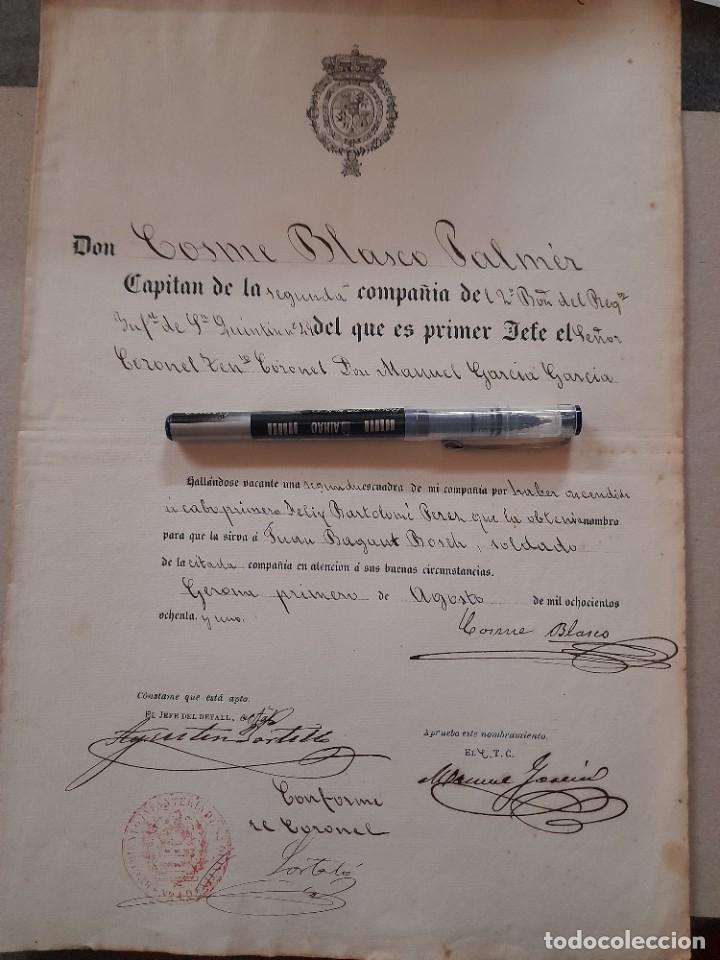 Don Cosme Blasco Palmér
Capitan de la segunda compañia del 2º Bon del Regto
Infría de Sn Quintin nº 29 del que es primer Jefe el Señor
Coronel Tente Coronel Don Manuel Garcia Garcia
AIHAO
Hallándose vacante una segunda escuadra de mi compañia por haber ascendido
á cabo primero Felix Bartolomé Perez que la obtenia nombro
para que la sirva á Juan Bagant Bosch, soldado
de la citada compañia en atencion á sus buenas circunstancias.
Gerona primero de Agosto de mil ochocientos
ochenta y uno.
Cosme Blasco
Cónstame que está apto.
EL JEFE DEL DETALL,
Agustin Portillo
Apruebo este nombramiento.
EL C, T. C.
Manuel Garcia
Conforme
El Coronel
todocoleccion
todocoleccion.net